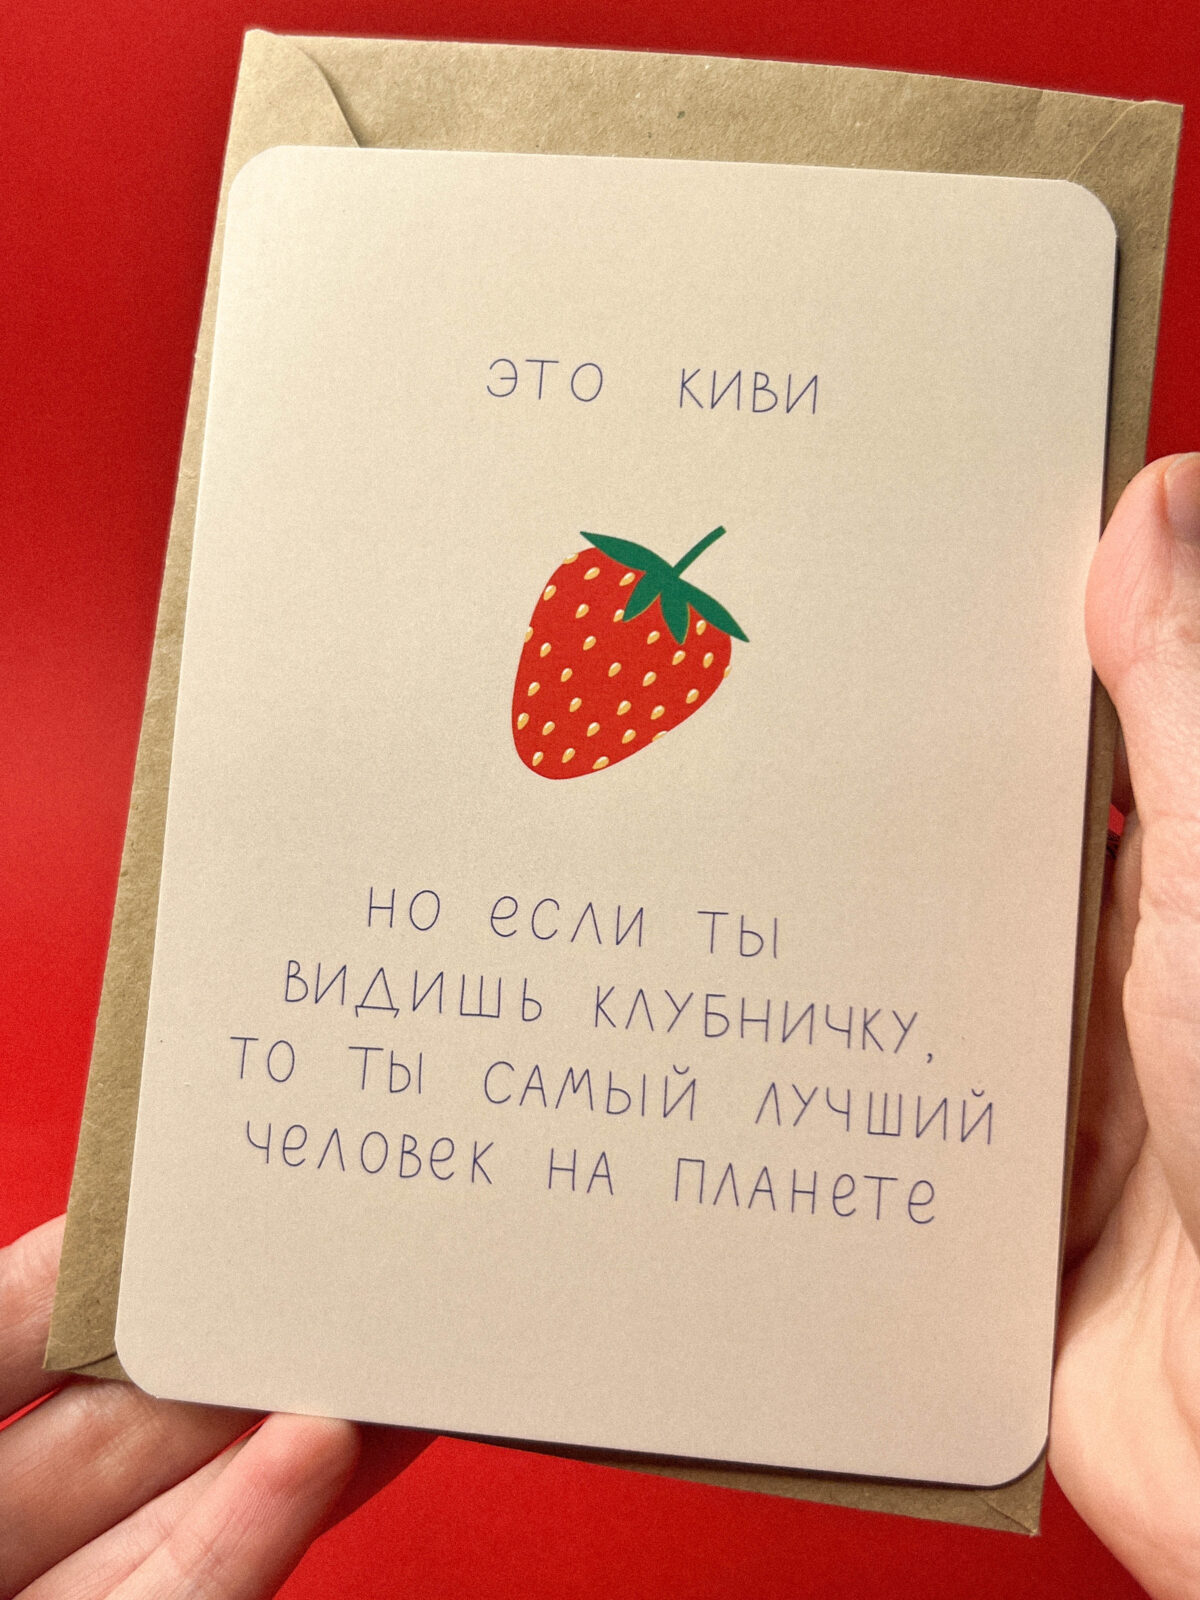 ЭТО КИВИ
НО ЕСЛИ ТЫ
ВИДИШЬ КЛУБНИЧКУ,
ТО ТЫ САМЫЙ ЛУЧШИЙ
ЧЕЛОВЕК НА ПЛАНЕТЕ